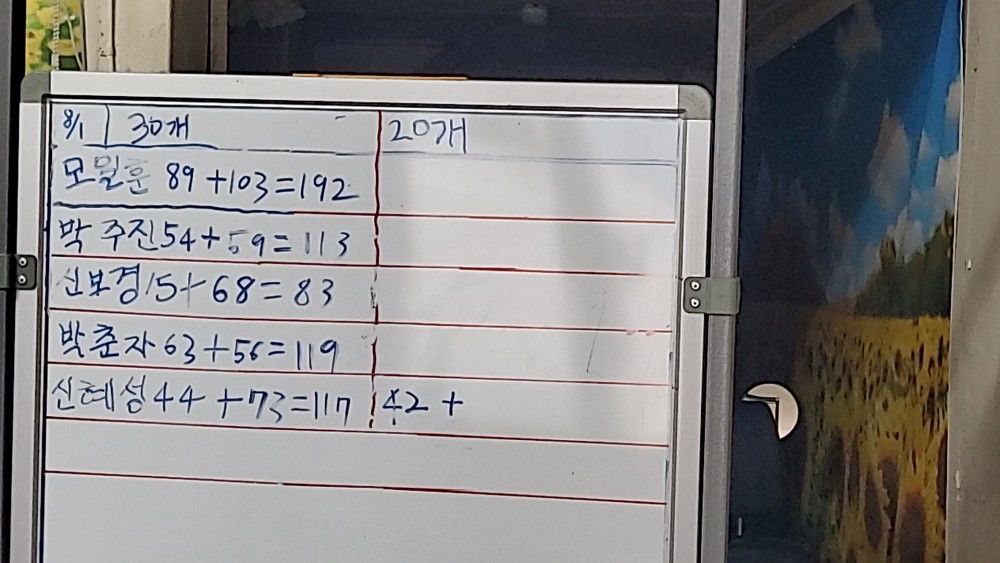 8/1 30개 20개
모일훈 89+103=192
박주진 54+59=113
신보경 15+68=83
박춘자 63+56=119
신혜성 44+73=117 42+